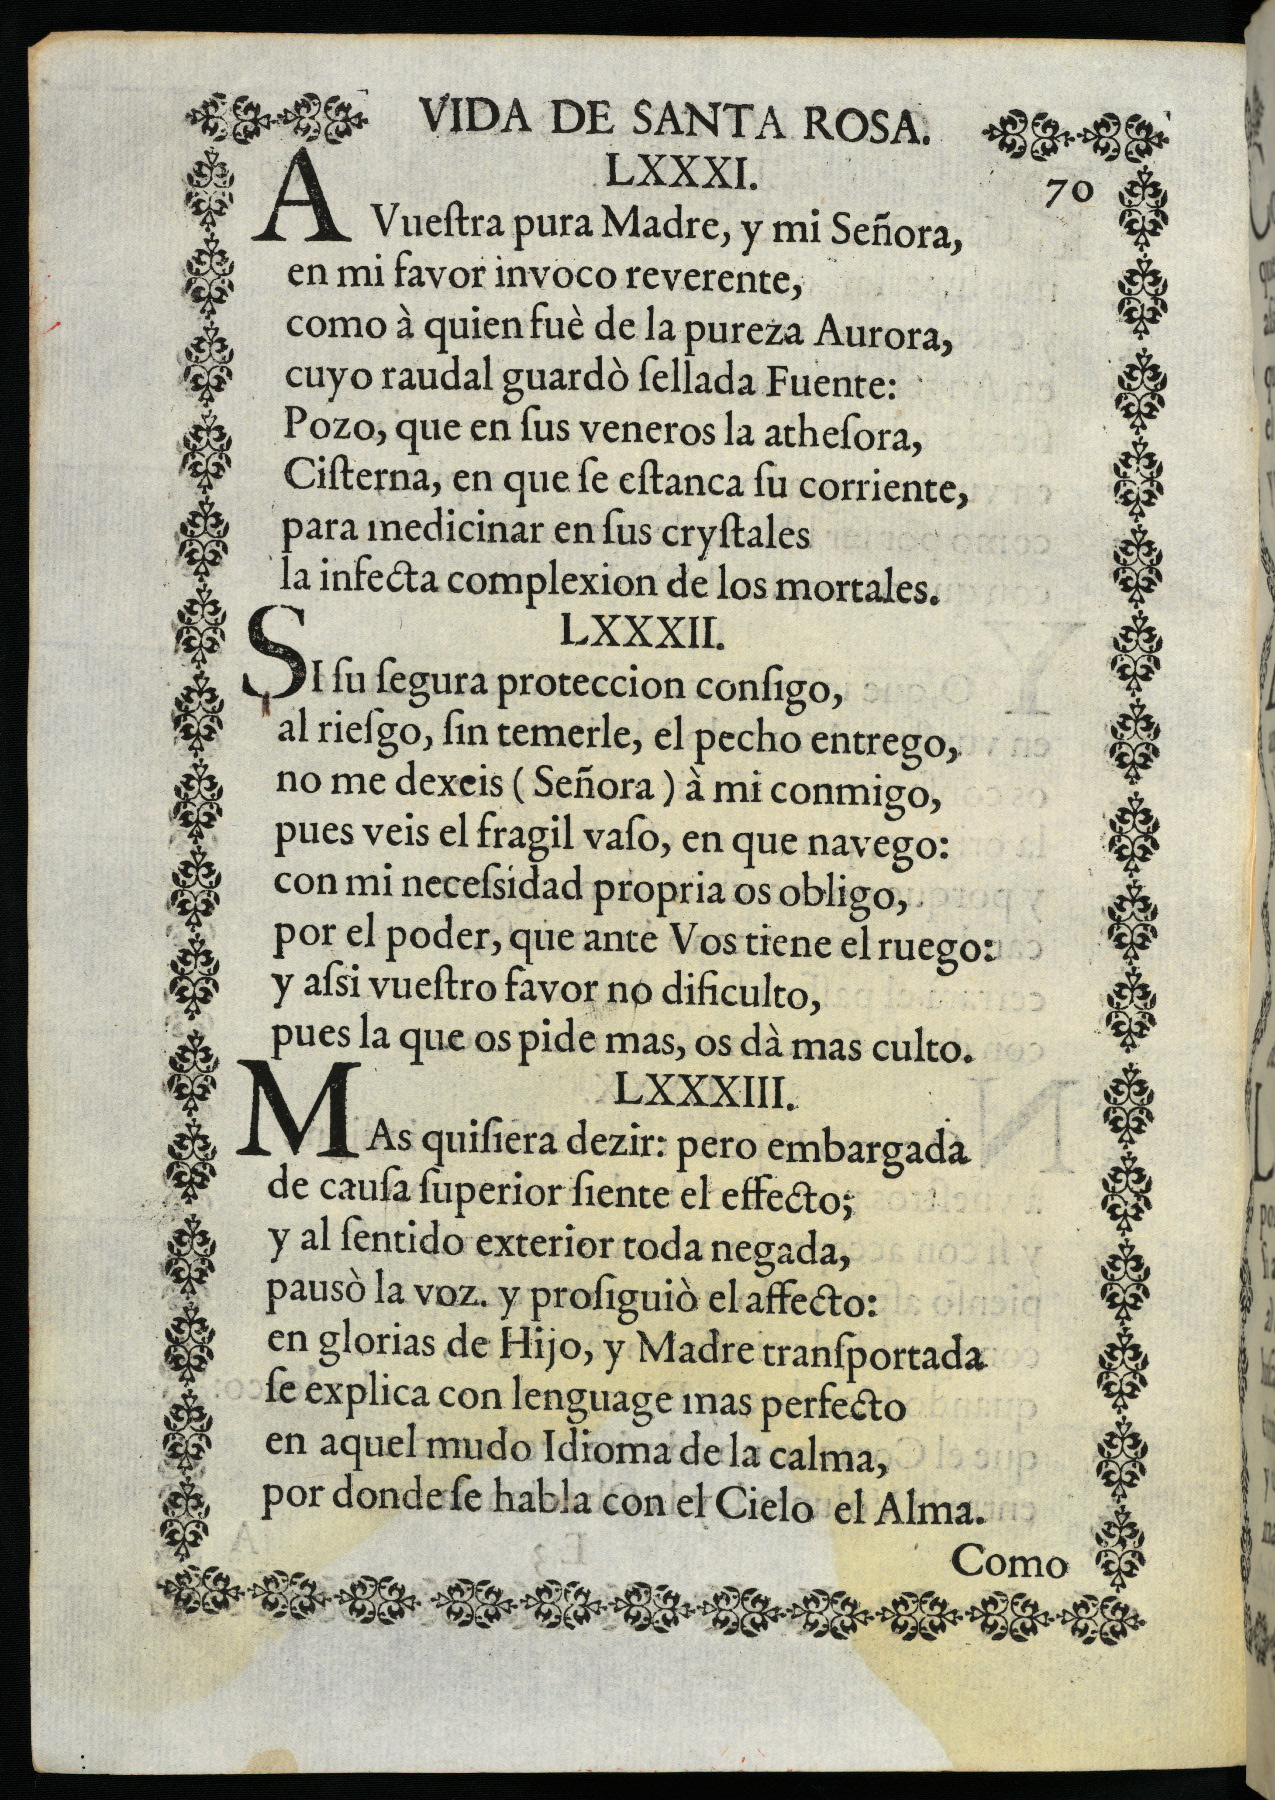 VIDA DE SANTA ROSA.
70
LXXXI.
A Vueſtra pura Madre, y mi Señora,
en mi favor invoco reverente,
como à quien fuè de la pureza Aurora,
cuyo raudal guardò ſellada Fuente:
Pozo, que en ſus veneros la atheſora,
Ciſterna, en que ſe eſtanca ſu corriente,
para medicinar en ſus cryſtales
la infecta complexion de los mortales.
LXXXII.
SI ſu ſegura proteccion conſigo,
al rieſgo, ſin temerle, el pecho entrego,
no me dexeis ( Señora ) à mi conmigo,
pues veis el fragil vaſo, en que navego:
con mi neceſsidad propria os obligo,
por el poder, que ante Vos tiene el ruego:
y aſsi vueſtro favor no dificulto,
pues la que os pide mas, os dà mas culto.
LXXXIII.
MAs quiſiera dezir: pero embargada
de cauſa ſuperior ſiente el effecto;
y al ſentido exterior toda negada,
pausò la voz. y proſiguiò el affecto:
en glorias de Hijo, y Madre tranſportada
ſe explica con lenguage mas perfecto
en aquel mudo Idioma de la calma,
por donde ſe habla con el Cielo el Alma.
Como